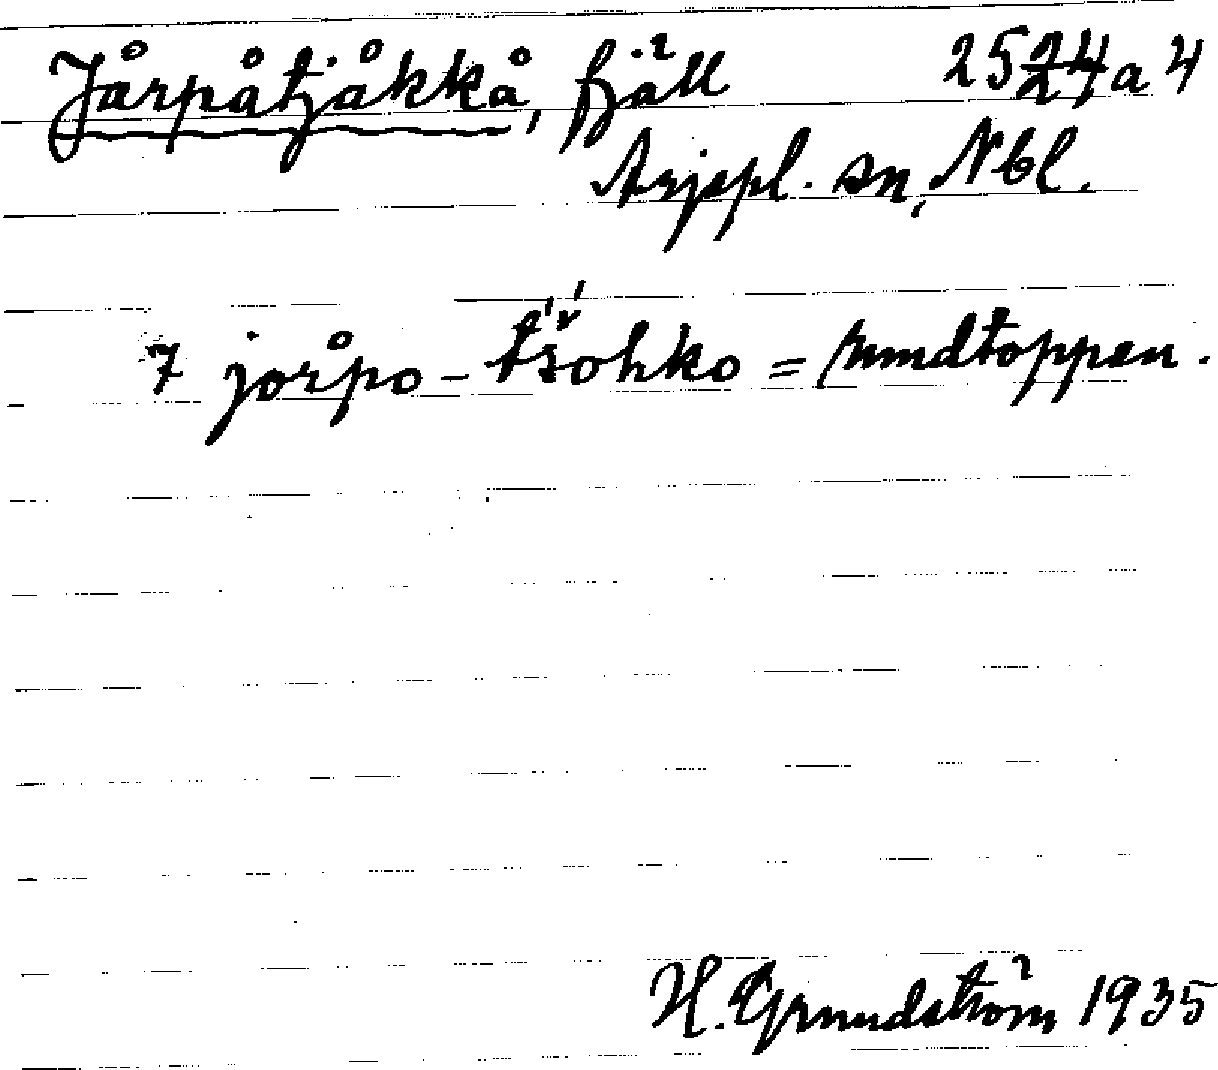 Jårpåtjåkkå, fjäll 25 24 a 4
Arjepl. sn, Nbl.
7 jorpo-tšohko = rundtoppen.
H. Grundström 1935